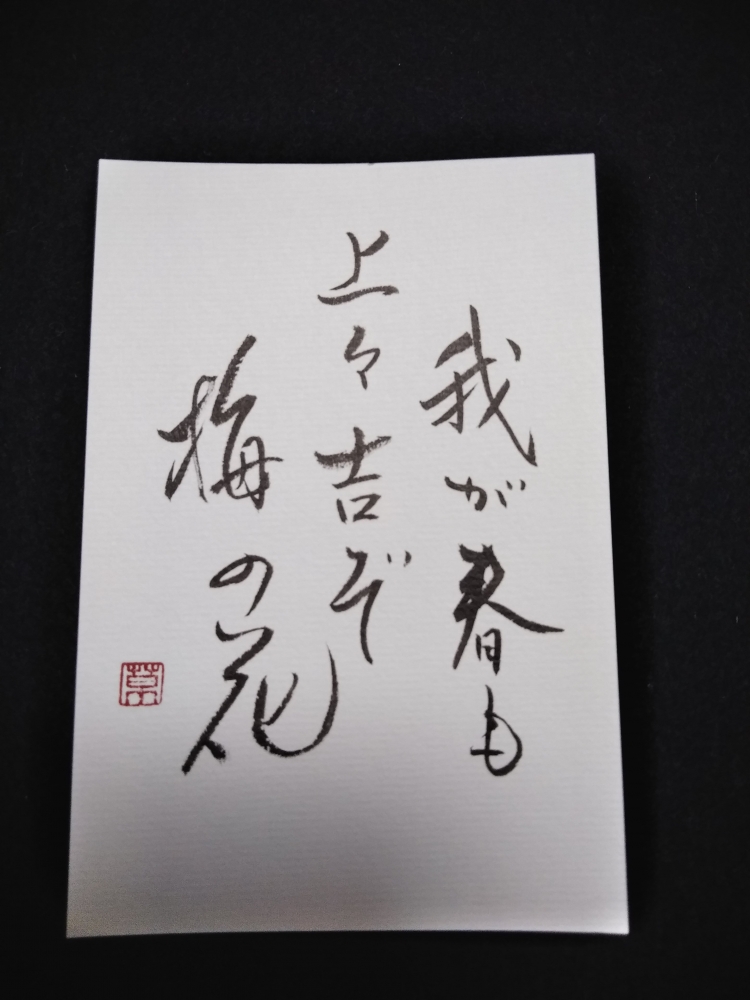 我が春も
上々吉ぞ
梅の花